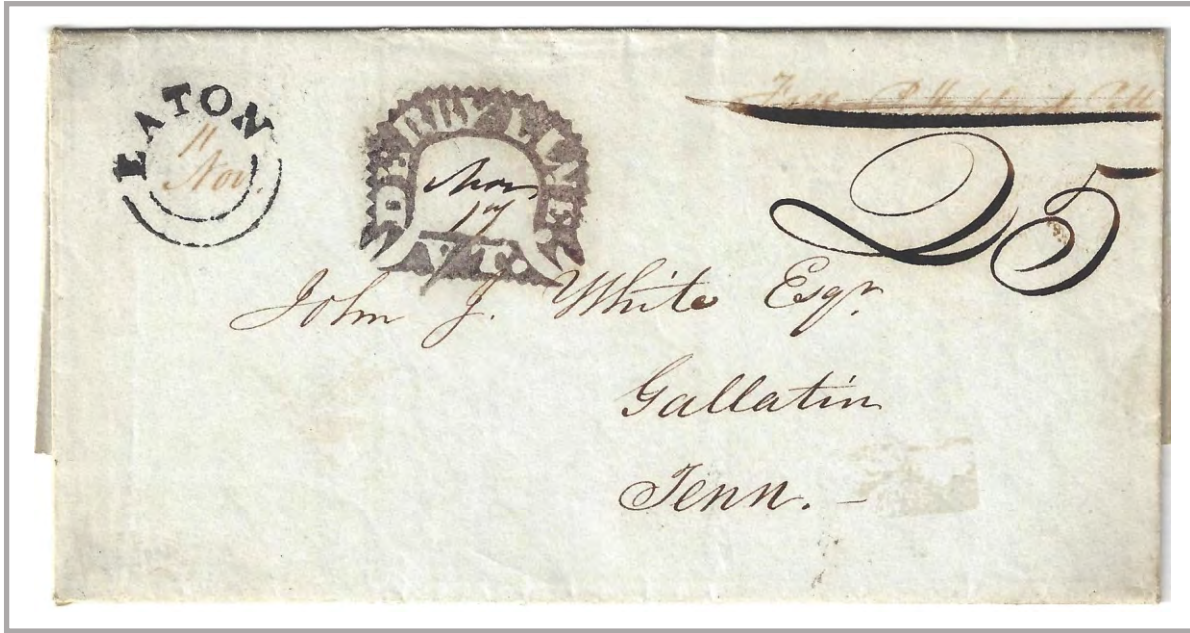 EATON
11
Nov.
DERBY LINE
Nov
17
VT.
Free
25
John J. White Esqr.
Gallatin
Tenn. –